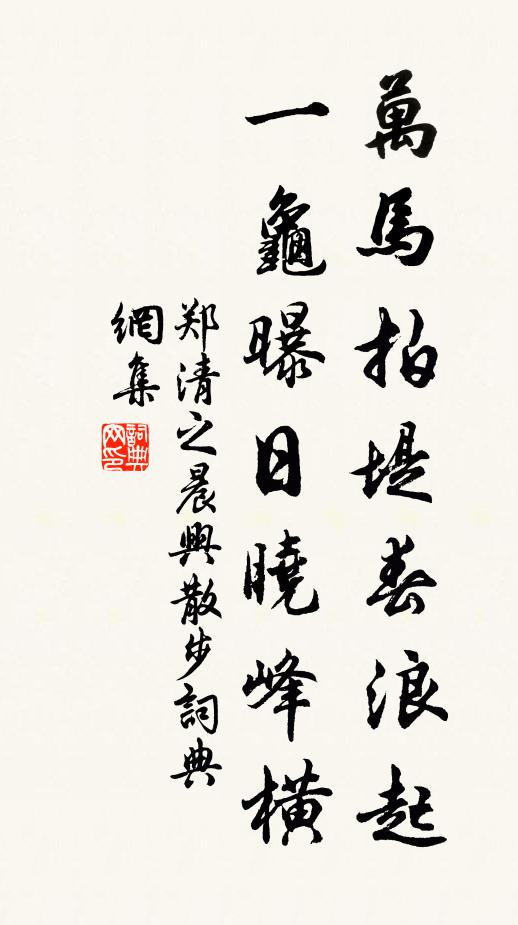 萬馬拍堤春浪起
一龜曝日曉峰橫
郑清之晨興散步詞典
網集
詞典
网印